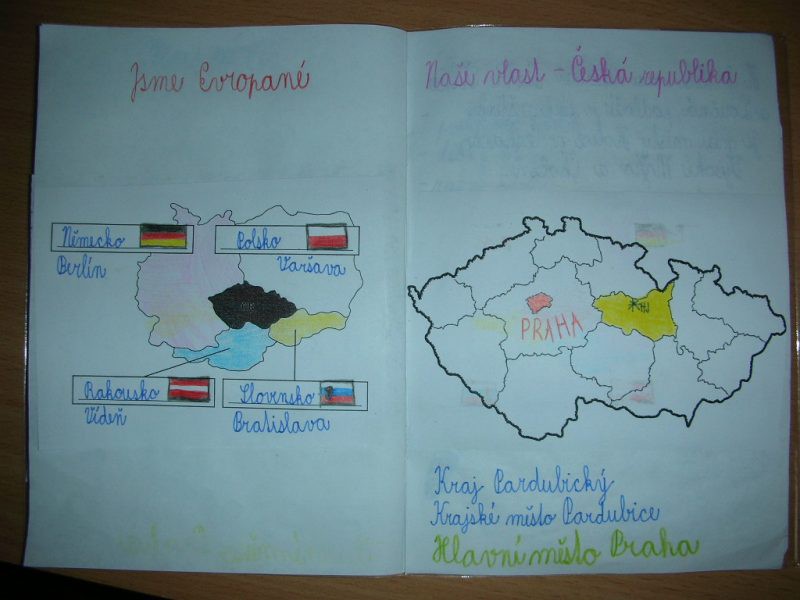 Jsme Evropané
Německo
Polsko
Berlín
Varšava
Rakousko
Slovinsko
Vídeň
Bratislava
Naši vlast - Česká republika
PRAHA
Kraj Pardubický
Krajské město Pardubice
Hlavní město Praha